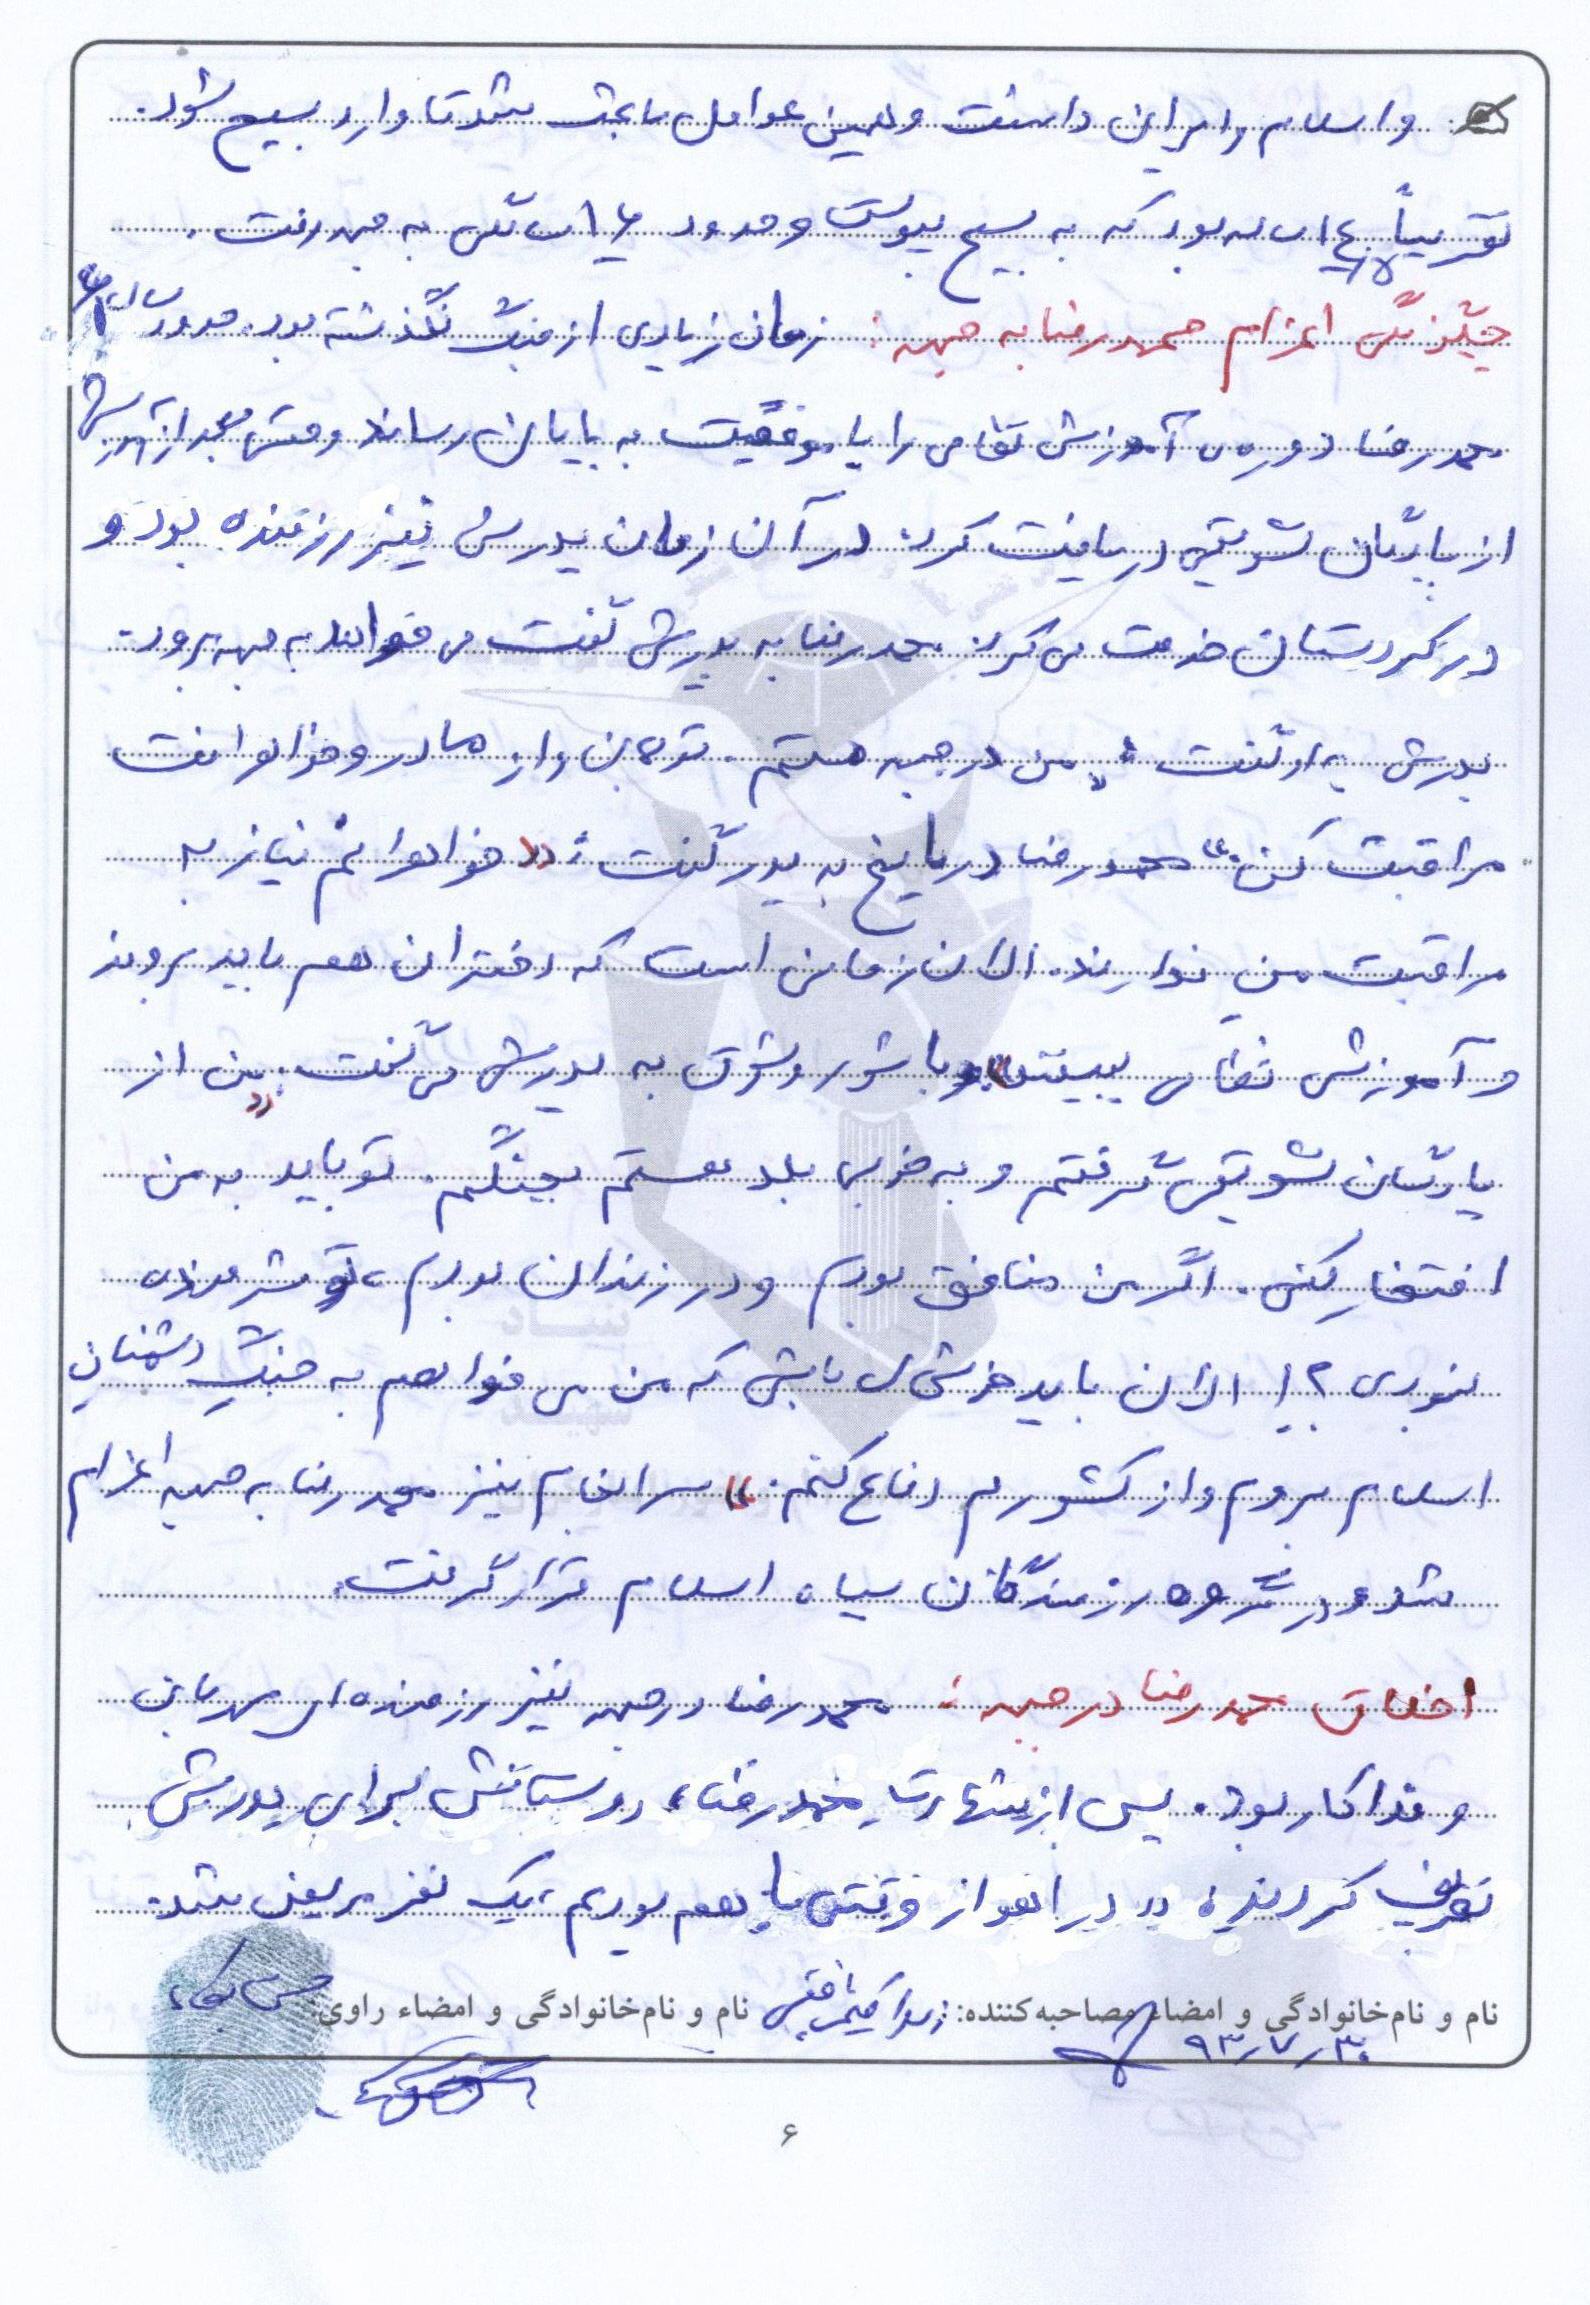 و اسلام و ایران داشت و همین عوامل باعث شد تا وارد بسیج شود.
تقریباً ۱۴ ساله بود که به بسیج پیوست و حدود ۱۶ سالگی به جبهه رفت.
چگونگی اعزام محمدرضا به جبهه: زمان زیادی از جنگ نگذشته بود. حدود سال ۶۱
محمدرضا دوره‌ی آموزش نظامی را با موفقیت به پایان رساند و حتی بعد از آموزش
از پادگان تشویقی دریافت کرد. در آن زمان پدرش نیز رزمنده بود و
در کردستان خدمت می‌کرد. محمدرضا به پدرش گفت می‌خواهد به جبهه برود.
پدرش به او گفت: «من در جبهه هستم. تو همان از مادر و خواهرانت
مراقبت کن.» محمدرضا در پاسخ به پدر گفت: «خواهرانم نیاز به
مراقبت من ندارند. الان زمانی است که دختران هم باید بروند
و آموزش نظامی ببینند» و با شور و شوق به پدرش می‌گفت: «من از
پادگان تشویقی گرفتم و به خوبی بلد هستم بجنگم. تو باید به من
افتخار کنی. اگر من منافق بودم و در زندان بودم، تو شرمنده
نبودی؟! الان باید خوشحال باشی که من می‌خواهم به جنگ دشمنان
اسلام بروم و از کشورم دفاع کنم.» سرانجام نیز محمدرضا به جبهه اعزام
شد و در گروه رزمندگان سپاه اسلام قرار گرفت.
اخلاق محمدرضا در جبهه: محمدرضا در جبهه نیز رزمنده‌ای مهربان
و فداکار بود. پس از شهادت محمدرضا، دوستانش برای پدرش
تعریف کردند: «در اهواز وقتی با هم بودیم، یک نفر مریض شد.
نام و نام‌خانوادگی و امضاء مصاحبه‌کننده: نام و نام‌خانوادگی و امضاء راوی:
۹۳/۷/۳۰
۶